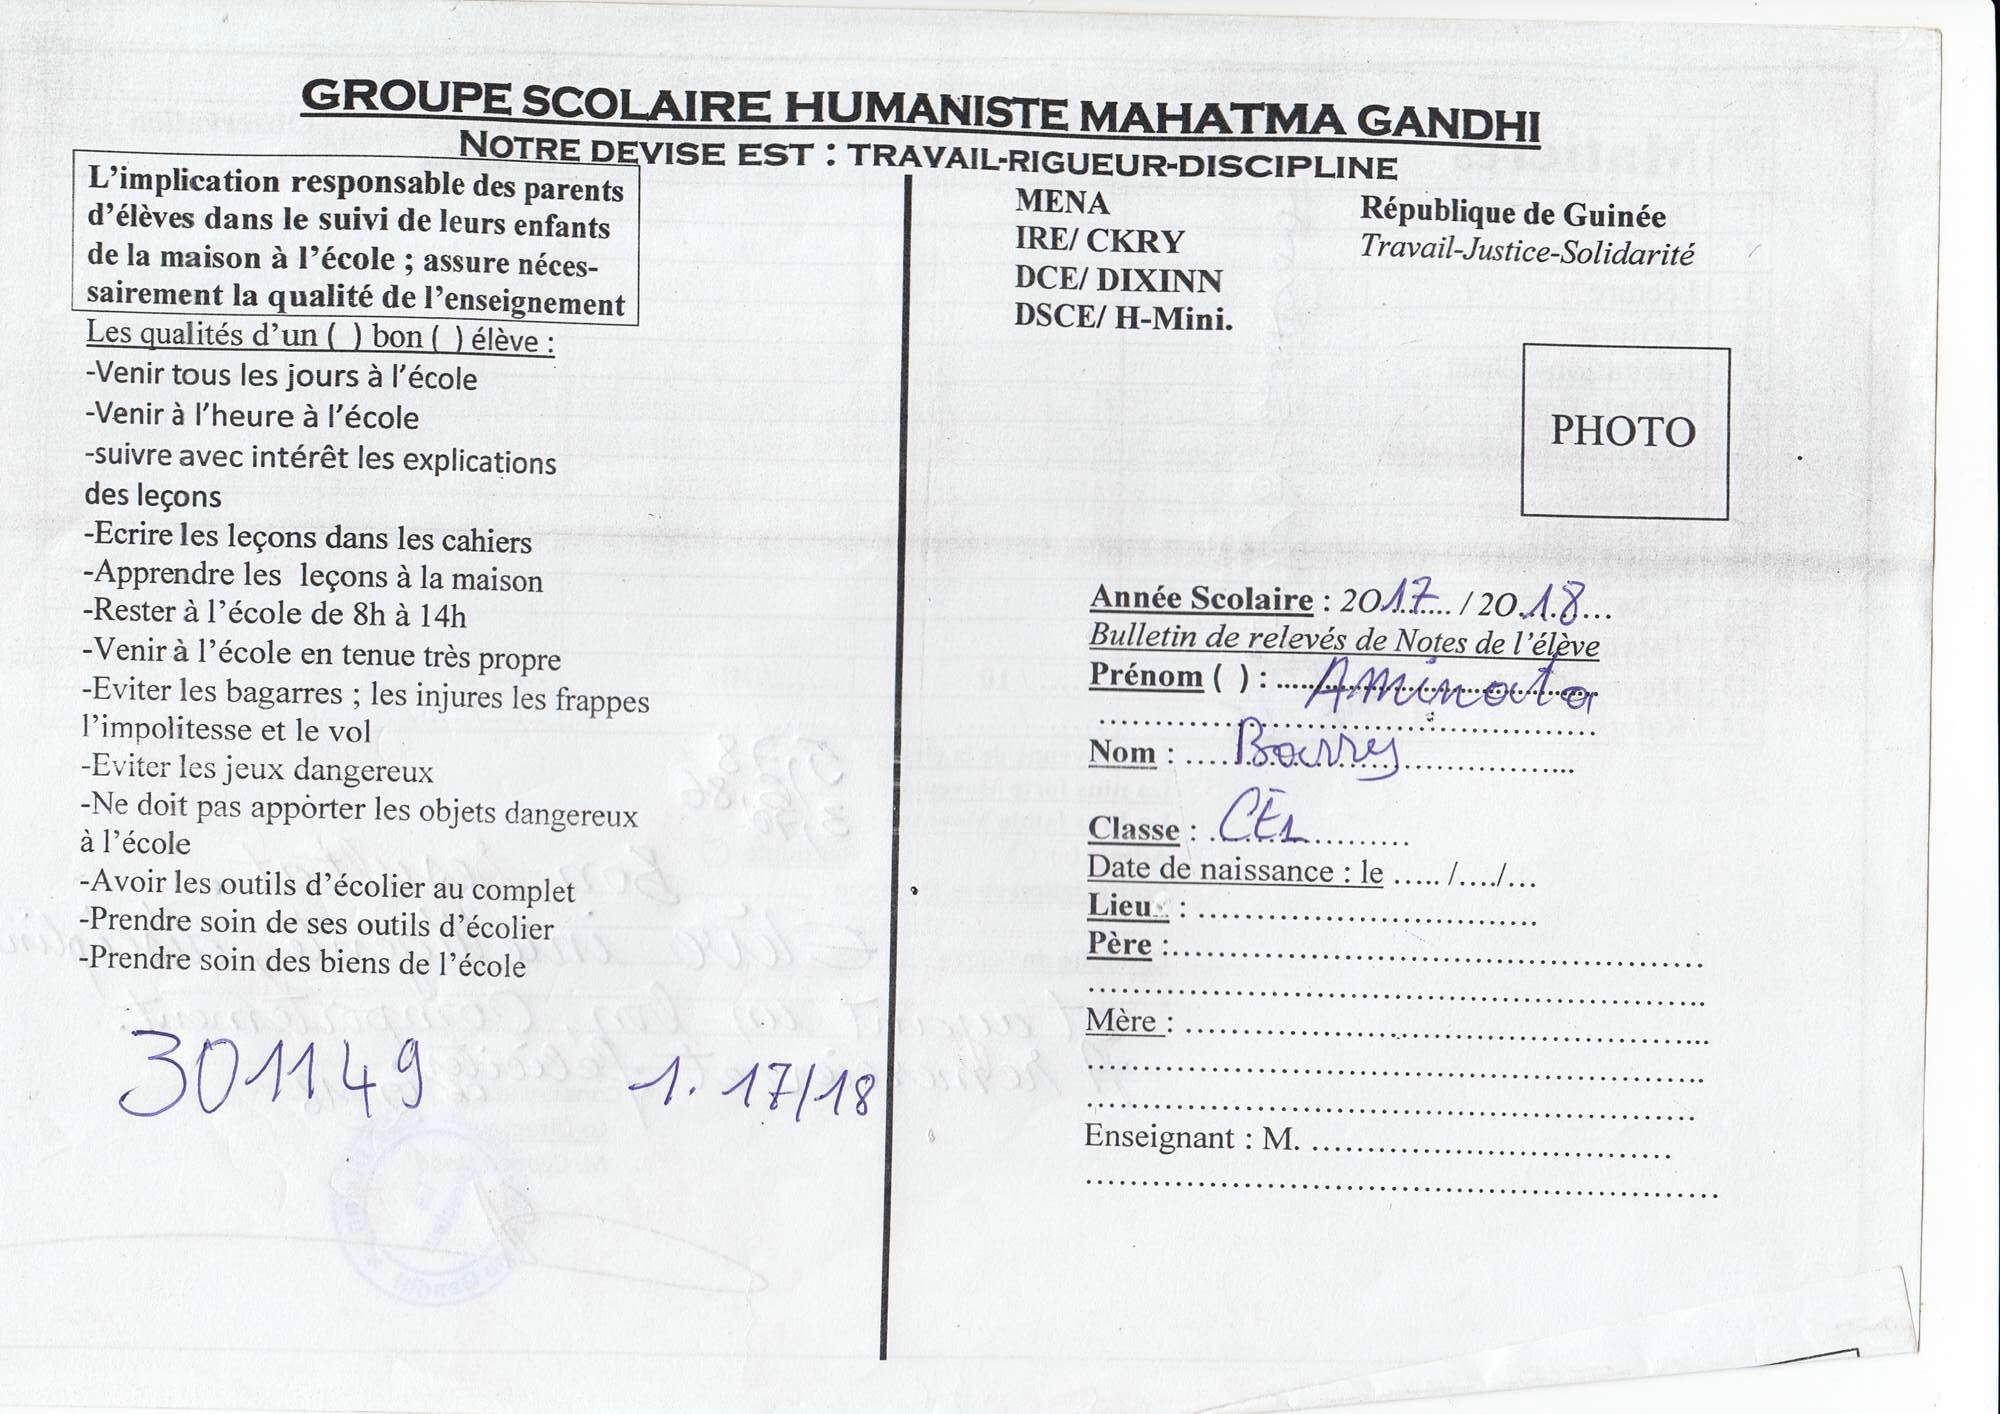 GROUPE SCOLAIRE HUMANISTE MAHATMA GANDHI
NOTRE DEVISE EST : TRAVAIL-RIGUEUR-DISCIPLINE
L'implication responsable des parents
d'élèves dans le suivi de leurs enfants
de la maison à l'école ; assure néces-
sairement la qualité de l'enseignement
Les qualités d'un ( ) bon ( ) élève :
-Venir tous les jours à l'école
-Venir à l'heure à l'école
-suivre avec intérêt les explications
des leçons
-Ecrire les leçons dans les cahiers
-Apprendre les leçons à la maison
-Rester à l'école de 8h à 14h
-Venir à l'école en tenue très propre
-Eviter les bagarres ; les injures les frappes
l'impolitesse et le vol
-Eviter les jeux dangereux
-Ne doit pas apporter les objets dangereux
à l'école
-Avoir les outils d'écolier au complet
-Prendre soin de ses outils d'écolier
-Prendre soin des biens de l'école
301149 1. 17/18
MENA
IRE/ CKRY
DCE/ DIXINN
DSCE/ H-Mini.
République de Guinée
Travail-Justice-Solidarité
PHOTO
Année Scolaire : 2017..... / 20.18...
Bulletin de relevés de Notes de l'élève
Prénom ( ) : Aminata
Nom : .... Barry ..................
Classe : . CE1 ..........
Date de naissance : le ..... /..../...
Lieu : ....................................
Père :.........................................................
Mère : ........................................................
Enseignant : M. ......................................